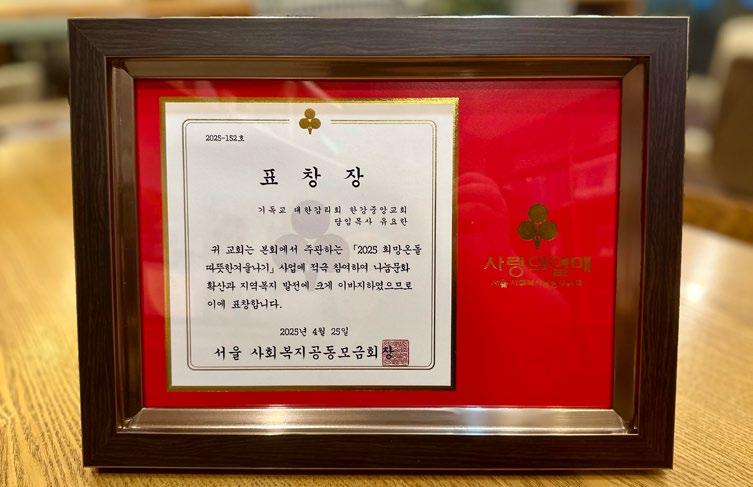 2025-152호
표 창 장
기독교 대한감리회 한강중앙교회
담임목사 유요한
귀 교회는 본회에서 주관하는 「2025 희망온돌
따뜻한겨울나기」 사업에 적극 참여하여 나눔문화
확산과 지역복지 발전에 크게 이바지하였으므로
이에 표창합니다.
2025년 4월 25일
서울 사회복지공동모금회장
사랑의열매
서울 사회복지공동모금회